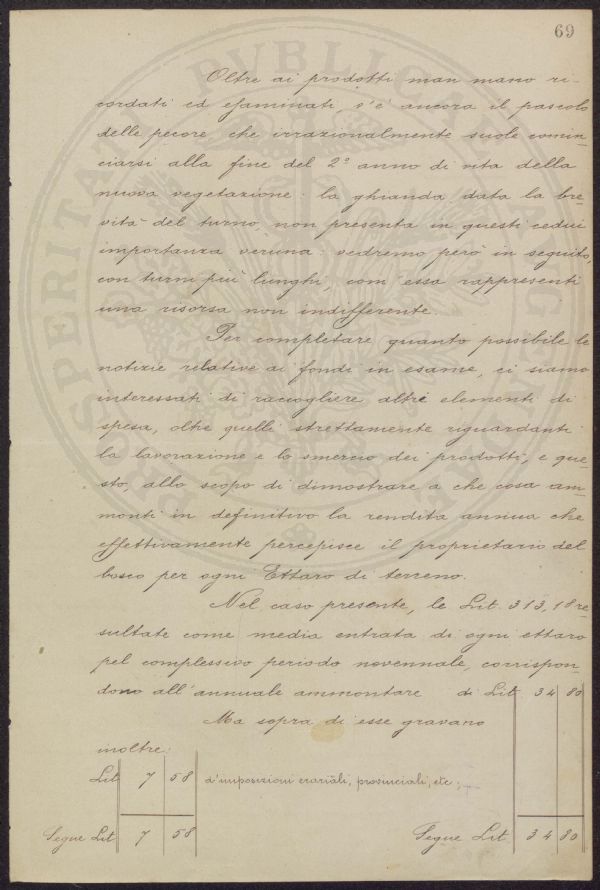 69
Oltre ai prodotti man mano ri-
cordati ed esaminati, v'è ancora il pascolo
delle pecore che irrazionalmente suole comin-
ciarsi alla fine del 2° anno di vita della
nuova vegetazione: la ghianda data la bre-
vità del turno, non presenta in questi cedui
importanza veruna: vedremo però in seguito,
con turni più lunghi, com'essa rappresenti
una risorsa non indifferente.
Per completare quanto possibile le
notizie relative ai fondi in esame, ci siamo
interessati di raccogliere altri elementi di
spesa, oltre quelli strettamente riguardanti
la lavorazione e lo smercio dei prodotti, e que-
sto, allo scopo di dimostrare a che cosa am-
monti in definitivo la rendita annua che
effettivamente percepisce il proprietario del
bosco per ogni Ettaro di terreno.
Nel caso presente, le Lit. 313,18 re-
sultate come media entrata di ogni ettaro
pel complessivo periodo novennale, corrispon-
dono all'annuale ammontare di Lit 34 80
Ma sopra di esse gravano
inoltre:
Lit 7 58 d'imposizioni erariali, provinciali, etc;
Segue Lit 7 58 Segue Lit 34 80